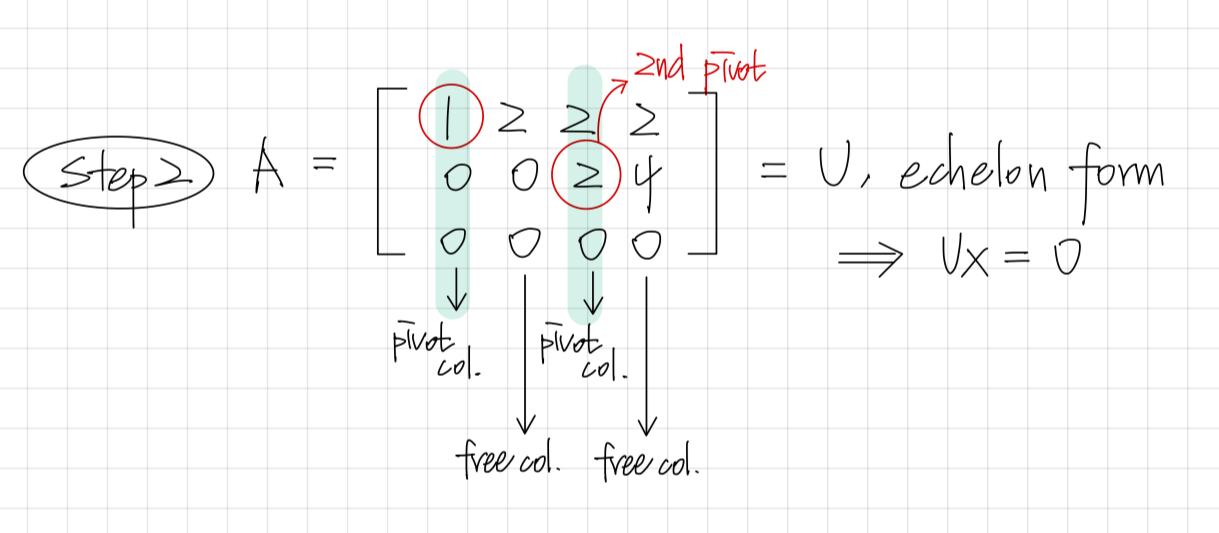 2nd pivot
Step 2 A = [ 1 2 2 2
0 0 2 4
0 0 0 0 ] = U, echelon form
⟹ Ux = 0
pivot col. pivot col.
free col. free col.